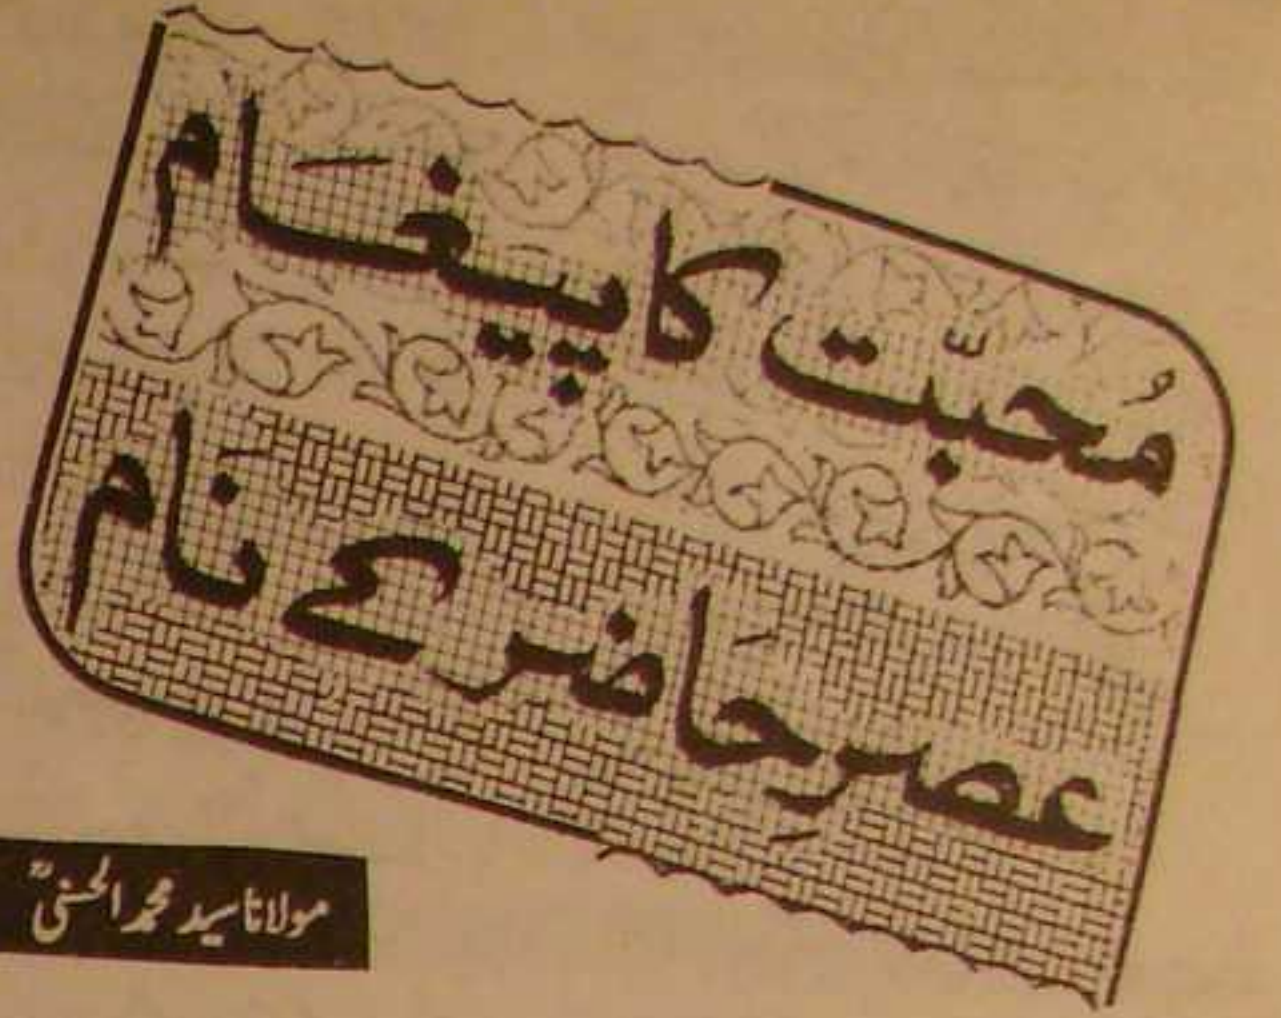 مُحبّت کا پیغَام
عصرِ حَاضر کے نَام
مولانا سید محمد الحسنیؒ